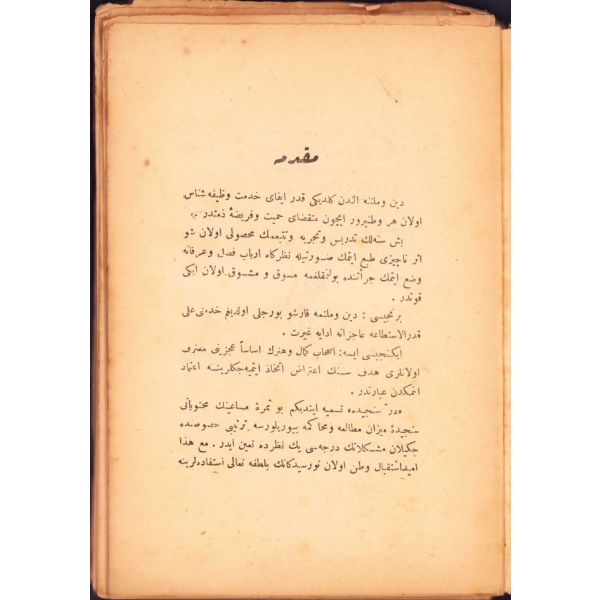 مقدمه
دین وملتنه الندن كلدیكی قدر ایفای خدمت وظیفه شناس
اولان هر وطنپرور ایچون متقضای حمیت وفریضهٔ ذمتدر .
بش سنه‌لك تدریس وتجربه وتتبعمك محصولی اولان شو
اثر ناچیزی طبع ایتمك صورتیله نظركاه ارباب فضل وعرفانه
وضع ایتمك جرأتنده بولنمقلغمه مسوق و مشوق اولان ایكی
قوتدر .
برنجیسی : دین وملتمه قارشو بورجلی اولدیغم خدمتی علی
قدرالاستطاعه عاجزانه ادایه غیرت .
ایكنجیسی ایسه : اصحاب كمال وهنرك اساساً عجزینی معترف
اولانلری هدف سهنك اعتراض اتخاذ ایتمیه‌جكلرینه اعتماد
ایتمكدن عبارتدر .
«در سنجیده» تسمیه ایتدیكم بو ثمرهٔ مساعینك محتویاتی
سنجیدهٔ میزان مطالعه ومحاكمه بیوریلورسه ترتیبی خصوصنده
چكیلان مشكلاتك درجه‌سی یك نظرده تعین ایدر . مع هذا
امید استقبال وطن اولان نورسیدكانك بلطفه تعالی استفاده‌لرینه